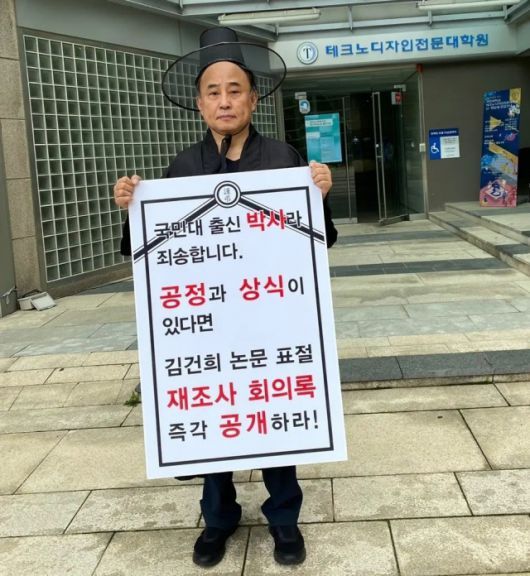 테크노디자인전문대학원
謹弔
국민대 출신 박사라
죄송합니다.
공정과 상식이
있다면
김건희 논문 표절
재조사 회의록
즉각 공개하라!